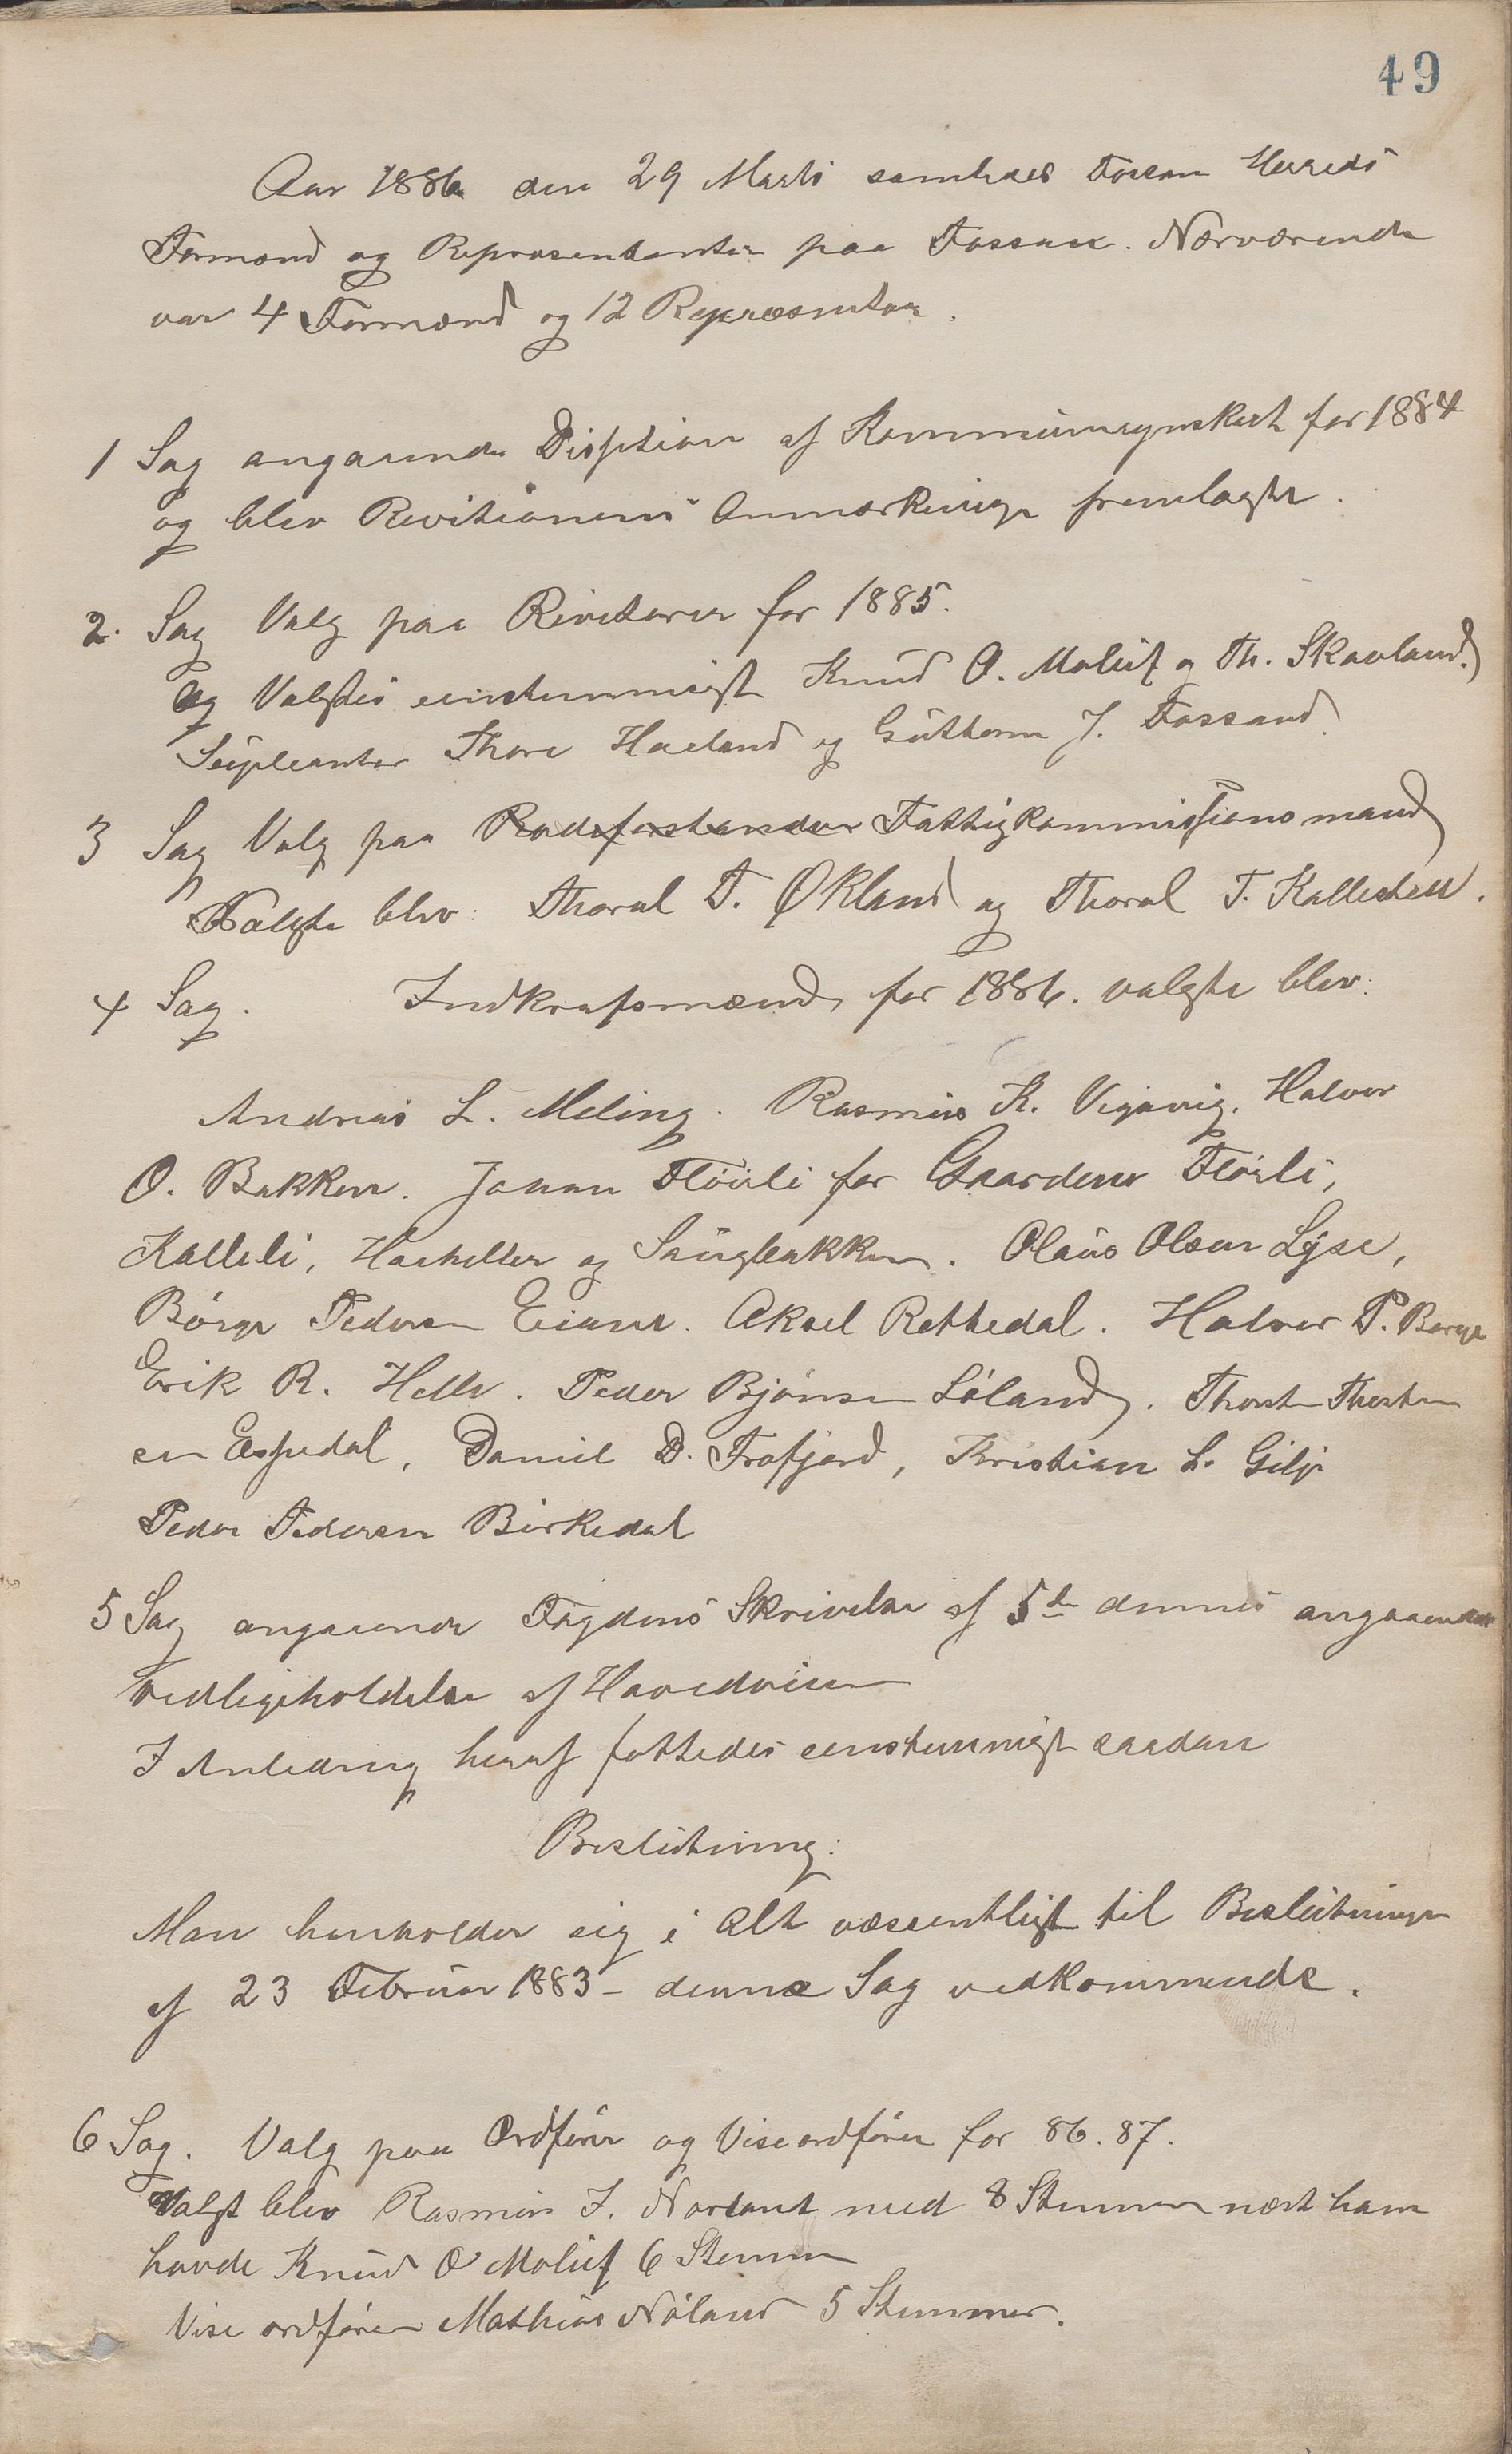 49
Aar 1886 den 29 Marts samledes Fossan Herreds
Formænd og Repræsentanter paa Fossan. Nærværende
var 4 Formænd og 12 Repræsentar.
1 Sag angaaende Disition af Kommuneregnskabet for 1884
og blev Revitionens Anmærkninger fremlagte.
2. Sag Valg paa Rivitorer for 1885.
og Valgtes einstemmigt Knud O. Molauf og Th. Skavland.
Supleanter Thore Haeland og Guttorm J. Fossand.
3 Sag Valg paa Rodeforstander Fattigkommissions mænd
Valgte blev: Thoral T. Økland og Thoral T. Kallesten.
4 Sag. Indkrafsmænd for 1886. valgte blev:
Andreas L. Meling. Rasmus K. Vigavig. Halvor
O. Bakken. Johan Flöirli for Gaardene Flörli,
Kalleli, Haaheller og Saugbakken. Olaus Olsen Lyse,
Börge Pedersen Eiane. Aksel Rettedal. Halvor P. Berge
Erik R. Helle. Peder Bjönsen Löland. Thorsten Thorsten
sen Espedal, Daniel D. Frafjord, Kristian L. Gilje
Peder Pedersen Birkedal
5 Sag angaaende Fogdens Skrivelse af 5te dennes angaaende
vedligeholdelse af Hovedveien
I Anledning heraf fattedes eenstemmigt saadan
Beslutning:
Man henholder sig i alt væssentligt til Beslutningen
af 23 Februar 1883 - denne Sag vedkommende.
6 Sag. Valg paa Ordförer og Viseordförer for 86. 87.
Valgt blev Rasmus I. Norland med 8 Stemmer næst ham
havde Knud O Molauf 6 Stemmer
Vise ordförer Mathias Nöland 5 Stemmer.